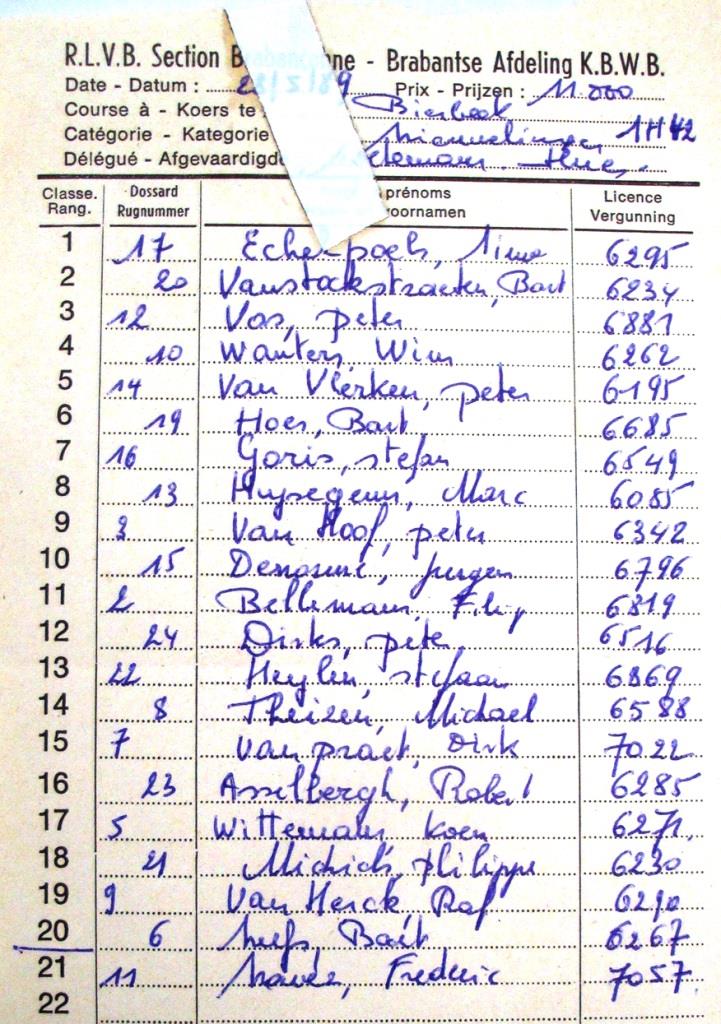 R.L.V.B. Section Brabançonne - Brabantse Afdeling K.B.W.B.
Date - Datum : 28/5/89 Prix - Prijzen : 11.000
Course à - Koers te Bierbeek
Catégorie - Kategorie Nieuwelingen 1H42
Délégué - Afgevaardigd
Classe. Rang. Dossard Rugnummer prénoms oornamen Licence Vergunning
1 17 6295
2 20 Vanstackstraeten, Bart 6234
3 12 Vos, peter 6881
4 10 Wauters, Wim 6262
5 14 Van Vlerken, peter 6195
6 19 Hoes, Bart 6685
7 16 Goris, stefan 6549
8 13 Huysegems, Marc 6085
9 3 Van Hoof, peter 6342
10 15 jurgen 6796
11 2 Bellemans, Filip 6819
12 24 Dirks, peter 6516
13 22 Heylen, stefaan 6869
14 8 Theizen, Michael 6588
15 7 Van praet, Dirk 7022
16 23 Asselbergh, Robert 6285
17 5 Wittemans, koen 6271
18 21 philippe 6230
19 9 Van Herck, Raf 6210
20 6 Bart 6267
21 11 Frederic 7057
22